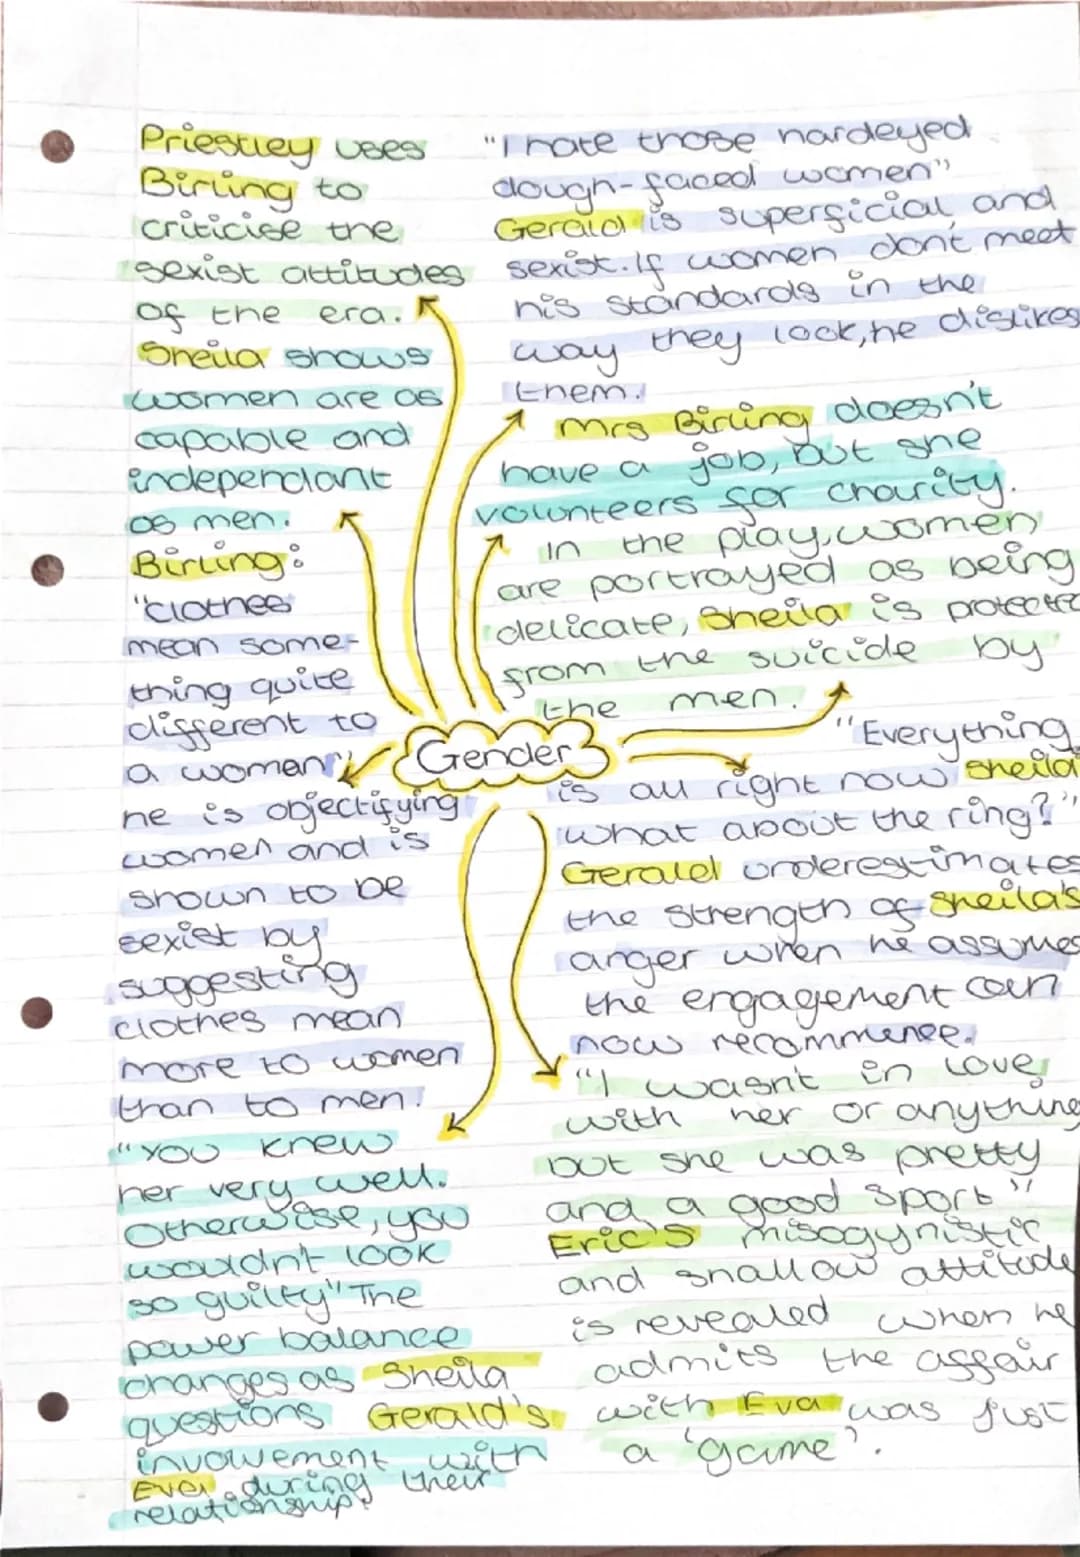 Priestley uses
Birling to
criticise the
sexist attitudes
of the era.
Sheila shows
women are as
capable and
independant
as men.
Birling:
"clothes
mean some-
thing quite
different to
a woman"
he is objectifying
women and is
shown to be
sexist by
suggesting
clothes mean
more to women
than to men.
"You knew
her very well.
Otherwise, you
wouldn't look
so guilty" The
power balance
changes as Sheila
questions Gerald's
involvement with
Eva during their
relationship.
"I hate those hardeyed
dough-faced women"
Gerald is superficial and
sexist. If women don't meet
his standards in the
way they look, he dislikes
them.
Mrs Birling doesn't
have a job, but she
volunteers for charity.
In the play, women
are portrayed as being
delicate, Sheila is protecte
from the suicide by
the men.
Gender
"Everything
is all right now Sheila
what about the ring?"
Gerald underestimates
the strength of Sheila's
anger when he assumes
the engagement can
now recommence.
"I wasn't in love
with her or anything
but she was pretty
and a good sport"
Eric's misogynistic
and shallow attitude
is revealed when he
admits the affair
with Eva was just
a 'game'.